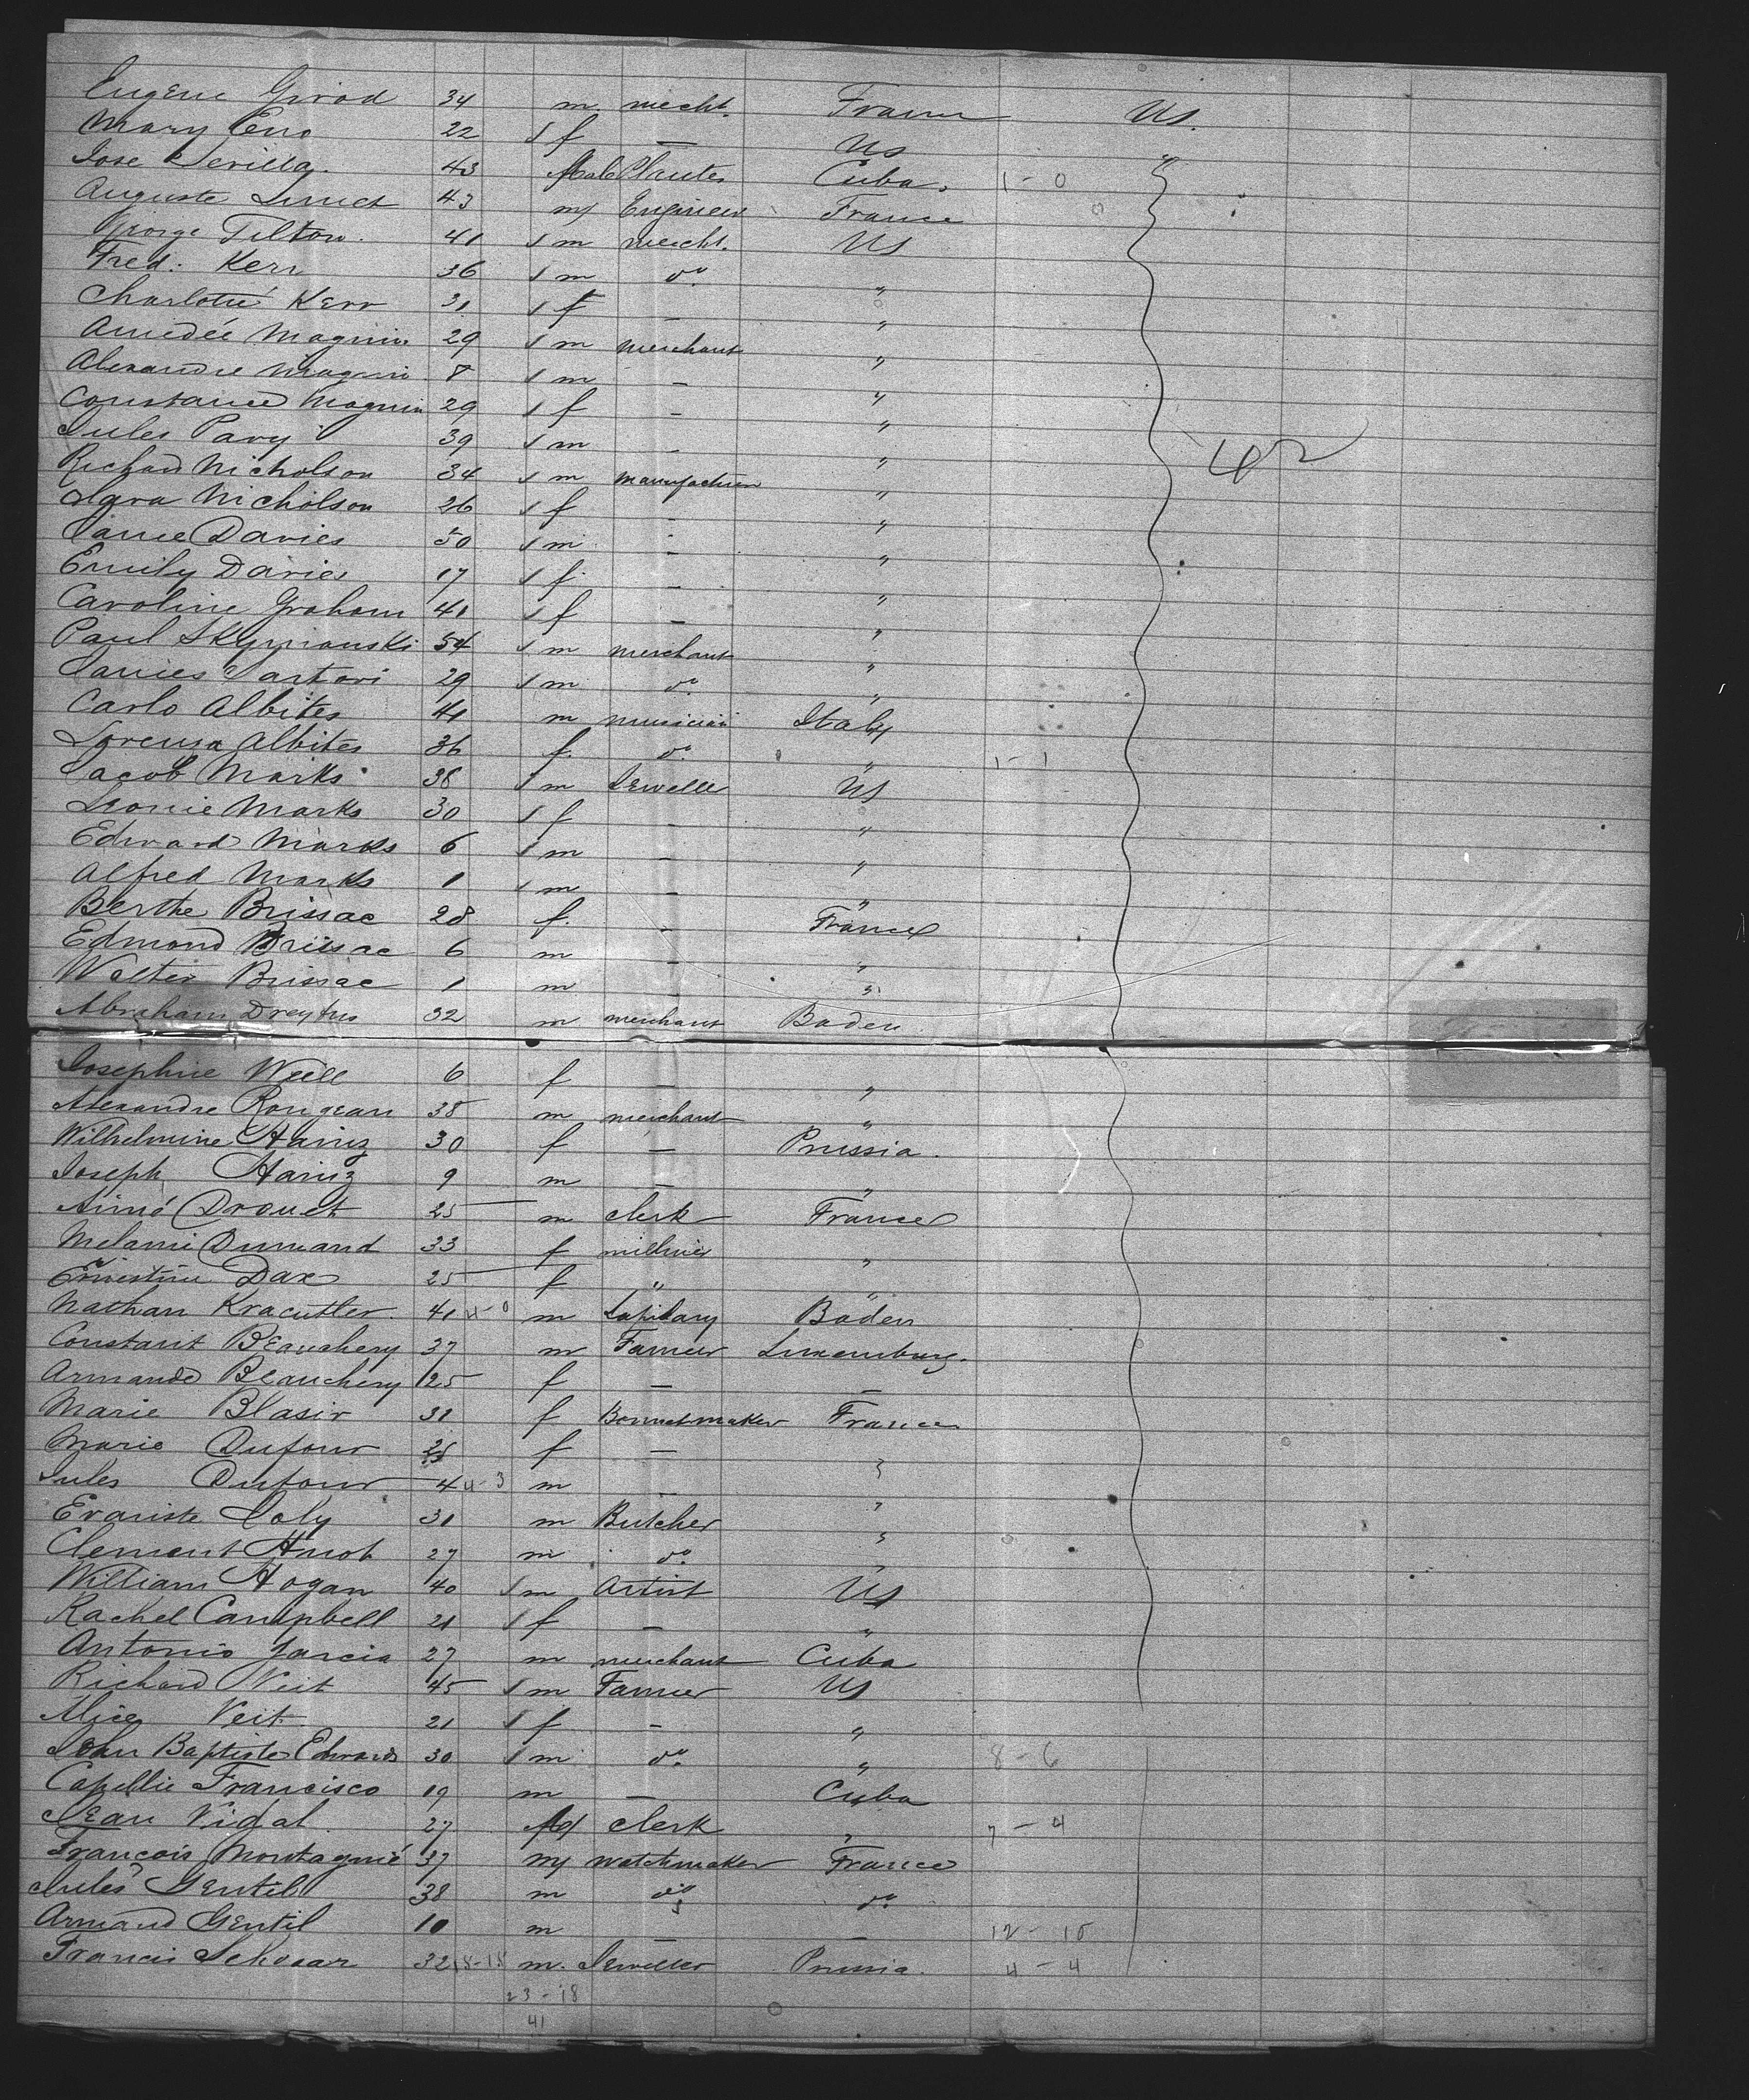 Eugene Girod 34 m mecht. France Us.
Mary Eno 22 f — Us
Jose Sevilla 43 Male Planter Cuba 1 - 0
Auguste 43 m Engineer France
George Tilton 41 m mecht. Us
Fred. Kerr 36 m do "
Charlotte Kerr 31 f — "
Amedée Magnin 29 m merchant "
Alexandre Magnin 8 m — "
Constance Magnin 29 f — "
Jules Pavy 39 m — " 42
Richard Nicholson 34 m manufacturer "
Nicholson 26 f — "
Davies 50 m — "
Emily Davies 17 f — "
Caroline Graham 41 f — "
Paul 54 m merchant "
James Sartori 29 m do "
Carlo Albites 41 m musician Italy
Lorenza Albites 36 f. do " 1 - 1
Jacob Marks 38 m Jeweller Us
Leonie Marks 30 f — "
Edward Marks 6 m — "
Alfred Marks 1 m — "
Berthe Brissac 28 f. — France
Edmond Brissac 6 m — "
Walter Brissac 1 m "
Abraham Dreyfus 32 m merchant Baden
Josephine Weill 6 f — "
Alexandre Rougeau 38 m merchant "
Wilhelmine Hainz 30 f — Prussia.
Joseph Hainz 9 m — "
Aimé Drouet 25 m clerk France
Melanie Dumand 33 f milliner "
Ernestine Dax 25 f " "
Nathan Kraeutler 41 4-0 m Lapidary Baden
Constant Beauchery 37 m Farmer Luxemburg.
Armande Beauchery 25 f — —
Marie Blasir 31 f Bonnetmaker France
Marie Dufour f — "
Jules Dufour 4 4-3 m — "
Evariste Joly 31 m Butcher "
Clement 27 m do "
William Hogan 40 m Artist Us
Rachel Campbell 21 f — "
Antonio Garcia 27 m merchant Cuba
Richard Veit 45 m Farmer Us
Alice Veit 21 f — "
John Baptiste Edwards 30 m do " 8 - 6
Capellie Francisco 19 m — Cuba
Jean Vidal 27 clerk " 7 - 4
François Montagnié 37 m watchmaker France
Jules Gentil 38 m do do
Armand Gentil 10 m — — 12 - 15
Francis 32 18-18 m. Jeweller Prussia. 4 - 4
23 - 18
41